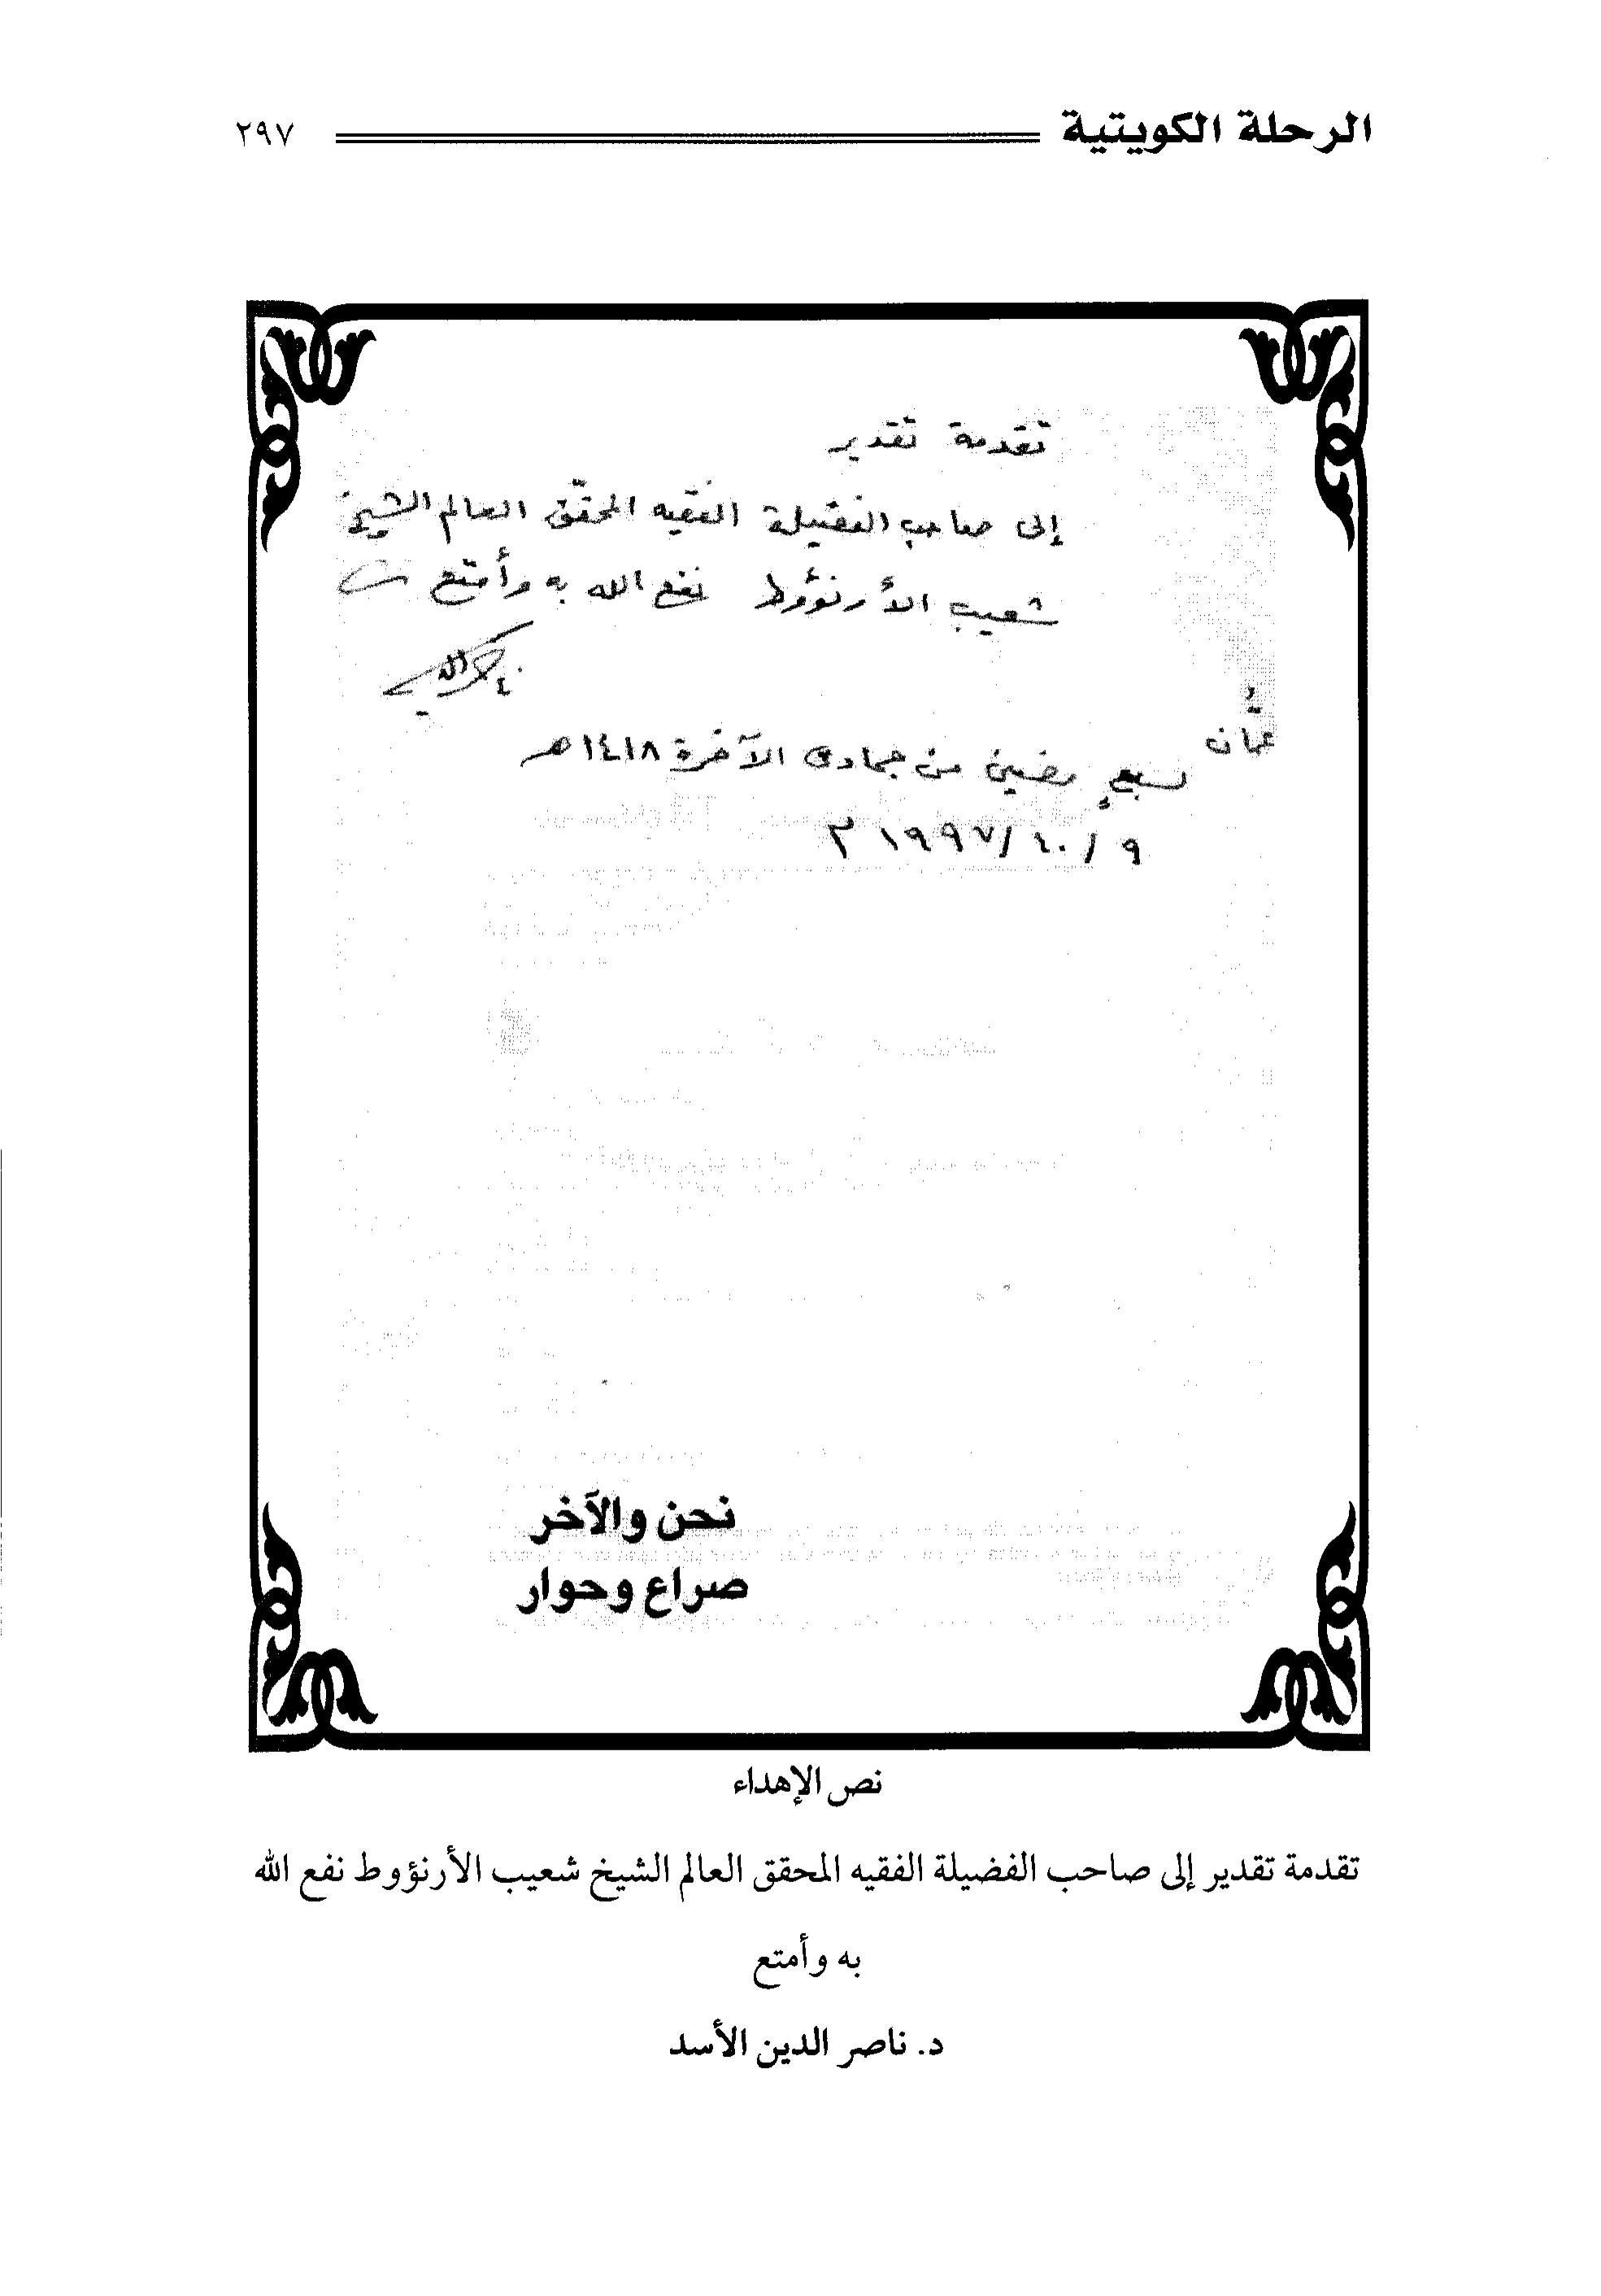 الرحلة الكويتية ٢٩٧
تقدمة تقدير
إلى صاحب الفضيلة الفقيه المحقّق العالم الشيخ
شعيب الأرنؤوط نفع الله به وأمتع
عمّان
لسبعٍ مضين من جمادى الآخرة ١٤١٨هـ
٩/١٠/١٩٩٧ م
نحن والآخر
صراع وحوار
نص الإهداء
تقدمة تقدير إلى صاحب الفضيلة الفقيه المحقق العالم الشيخ شعيب الأرنؤوط نفع الله
به وأمتع
د. ناصر الدين الأسد